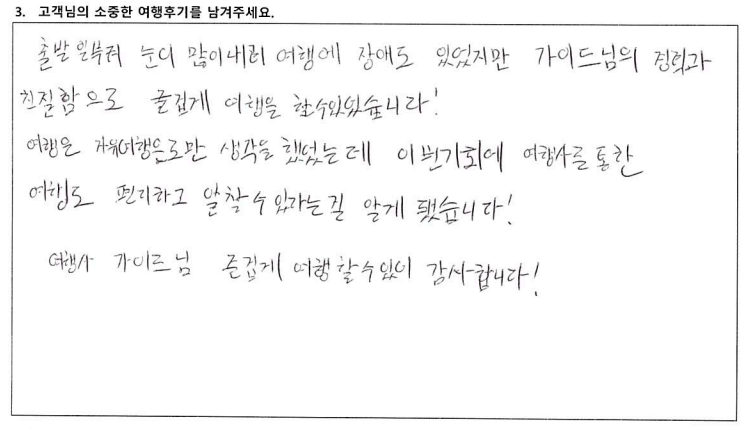 3. 고객님의 소중한 여행후기를 남겨주세요.
출발 일부터 눈이 많이내려 여행에 장애도 있었지만 가이드님의 경력과
친질함으로 즐겁게 여행을 할수있었습니다!
여행은 자유여행으로만 생각을 했었는데 이번기회에 여행사를 통한
여행도 편리하고 알찰수 있다는걸 알게 됐습니다!
여행사 가이드님 즐겁게 여행할수있어 감사합니다!